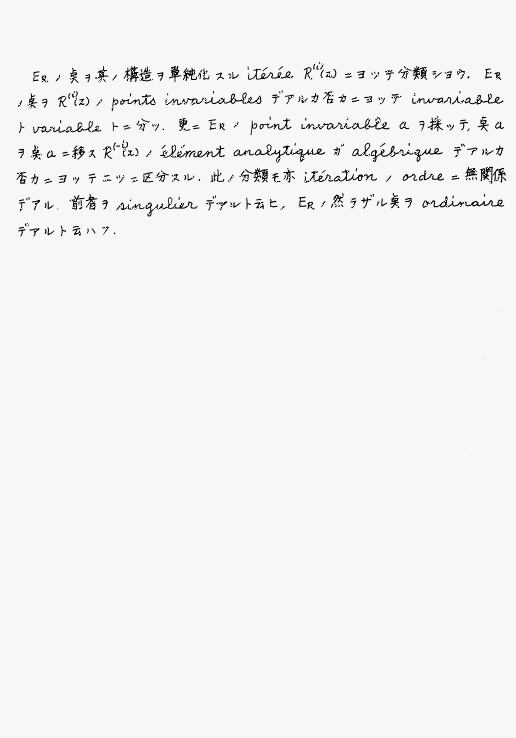 E_R ノ奌ヲ其ノ構造ヲ單純化スル itérée R^(i)(z) ニヨッテ分類ショウ. E_R
ノ奌ヲ R^(i)(z) ノ points invariables デアルカ否カニヨッテ invariable
ト variable トニ分ツ. 更ニ E_R ノ point invariable a ヲ採ッテ, 奌 a
ヲ奌 a ニ移ス R^(-i)(z) ノ élément analytique ガ algébrique デアルカ
否カニヨッテ二ツニ区分スル. 此ノ分類モ亦 itération ノ ordre ニ無関係
デアル. 前者ヲ singulier デアルト云ヒ, E_R ノ然ラザル奌ヲ ordinaire
デアルト云ハフ.